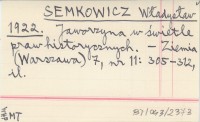 SEMKOWICZ Władysław
1922. Jaworzyna w świetle
praw historycznych. – Ziemia
(Warszawa) 7, nr 11: 305-312,
il.
MT